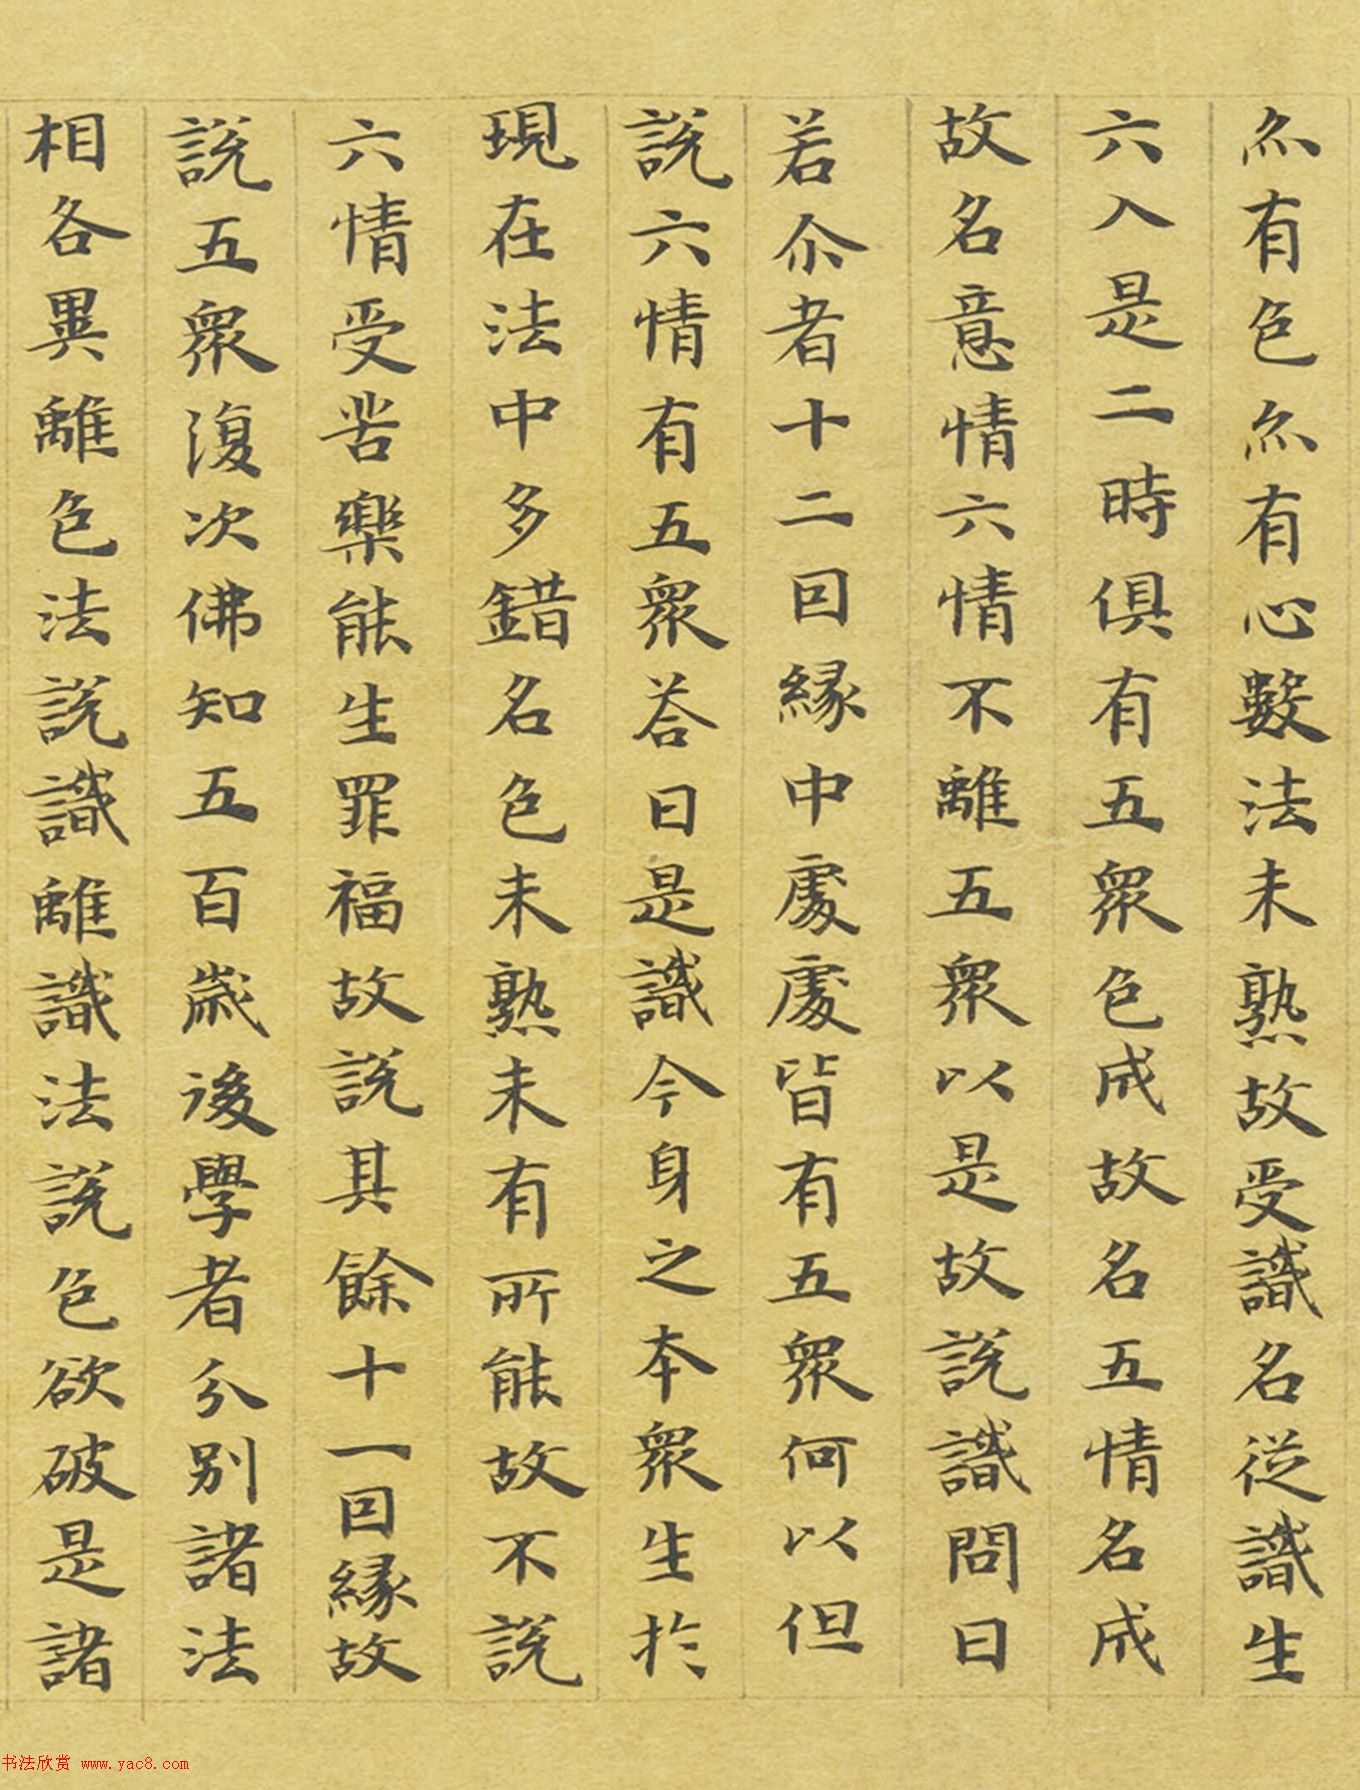 亦有色亦有心數法未熟故受識名從識生
六入是二時俱有五眾色成故名五情名成
故名意情六情不離五眾以是故說識問曰
若尒者十二因緣中處處皆有五眾何以但
說六情有五眾荅曰是識今身之本眾生於
現在法中多錯名色未熟未有所能故不說
六情受苦樂能生罪福故說其餘十一因緣故
說五眾復次佛知五百歲後學者分別諸法
相各異離色法說識離識法說色欲破是諸
书法欣赏 www.yac8.com